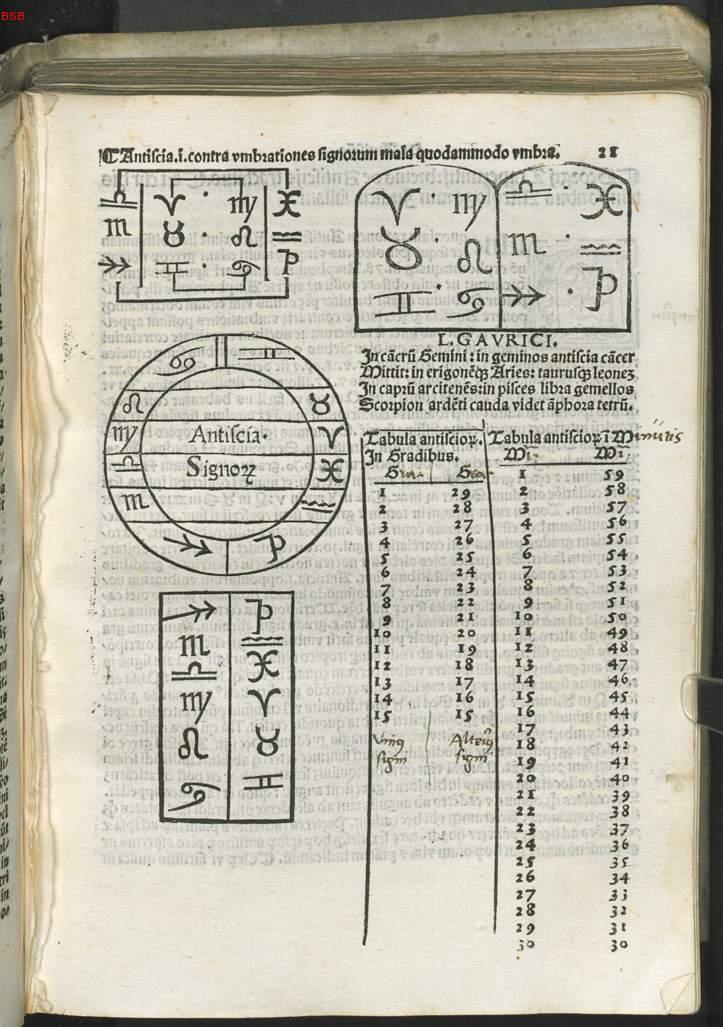 BSB
❡ Antiscia.i.contra vmbrationes signorum mala quodammodo vmbra. 28
♎ ♈ · ♍ ♓
♏ ♉ · ♌ ♒
♐ ♊ · ♋ ♑
♈ · ♍ ♎ · ♓
♉ · ♌ ♏ · ♒
♊ · ♋ ♐ · ♑
L. GAVRICI.
In cãcrũ Gemini : in geminos antiscia cãcer
Mittit: in erigonẽqꝫ Aries: taurusqꝫ leoneꝫ
In caprũ arcitenẽs: in pisces libra gemellos
Scorpion ardẽti cauda videt ãphora tetrũ.
♋ ♊
♌ ♉
♍ Antiscia· ♈
♎ Signoꝝ ♓
♏ ♒
♐ ♑
♐ ♑
♏ ♒
♎ ♓
♍ ♈
♌ ♉
♋ ♊
Tabula antiscioꝝ.
In Gradibus.
Gra. Gra.
1 29
2 28
3 27
4 26
5 25
6 24
7 23
8 22
9 21
10 20
11 19
12 18
13 17
14 16
15 15
Vniꝰ Alteriꝰ
signi signi
Tabula antiscioꝝ ĩ Minutis
Mi. Mi.
1 59
2 58
3 57
4 56
5 55
6 54
7 53
8 52
9 51
10 50
11 49
12 48
13 47
14 46
15 45
16 44
17 43
18 42
19 41
20 40
21 39
22 38
23 37
24 36
25 35
26 34
27 33
28 32
29 31
30 30